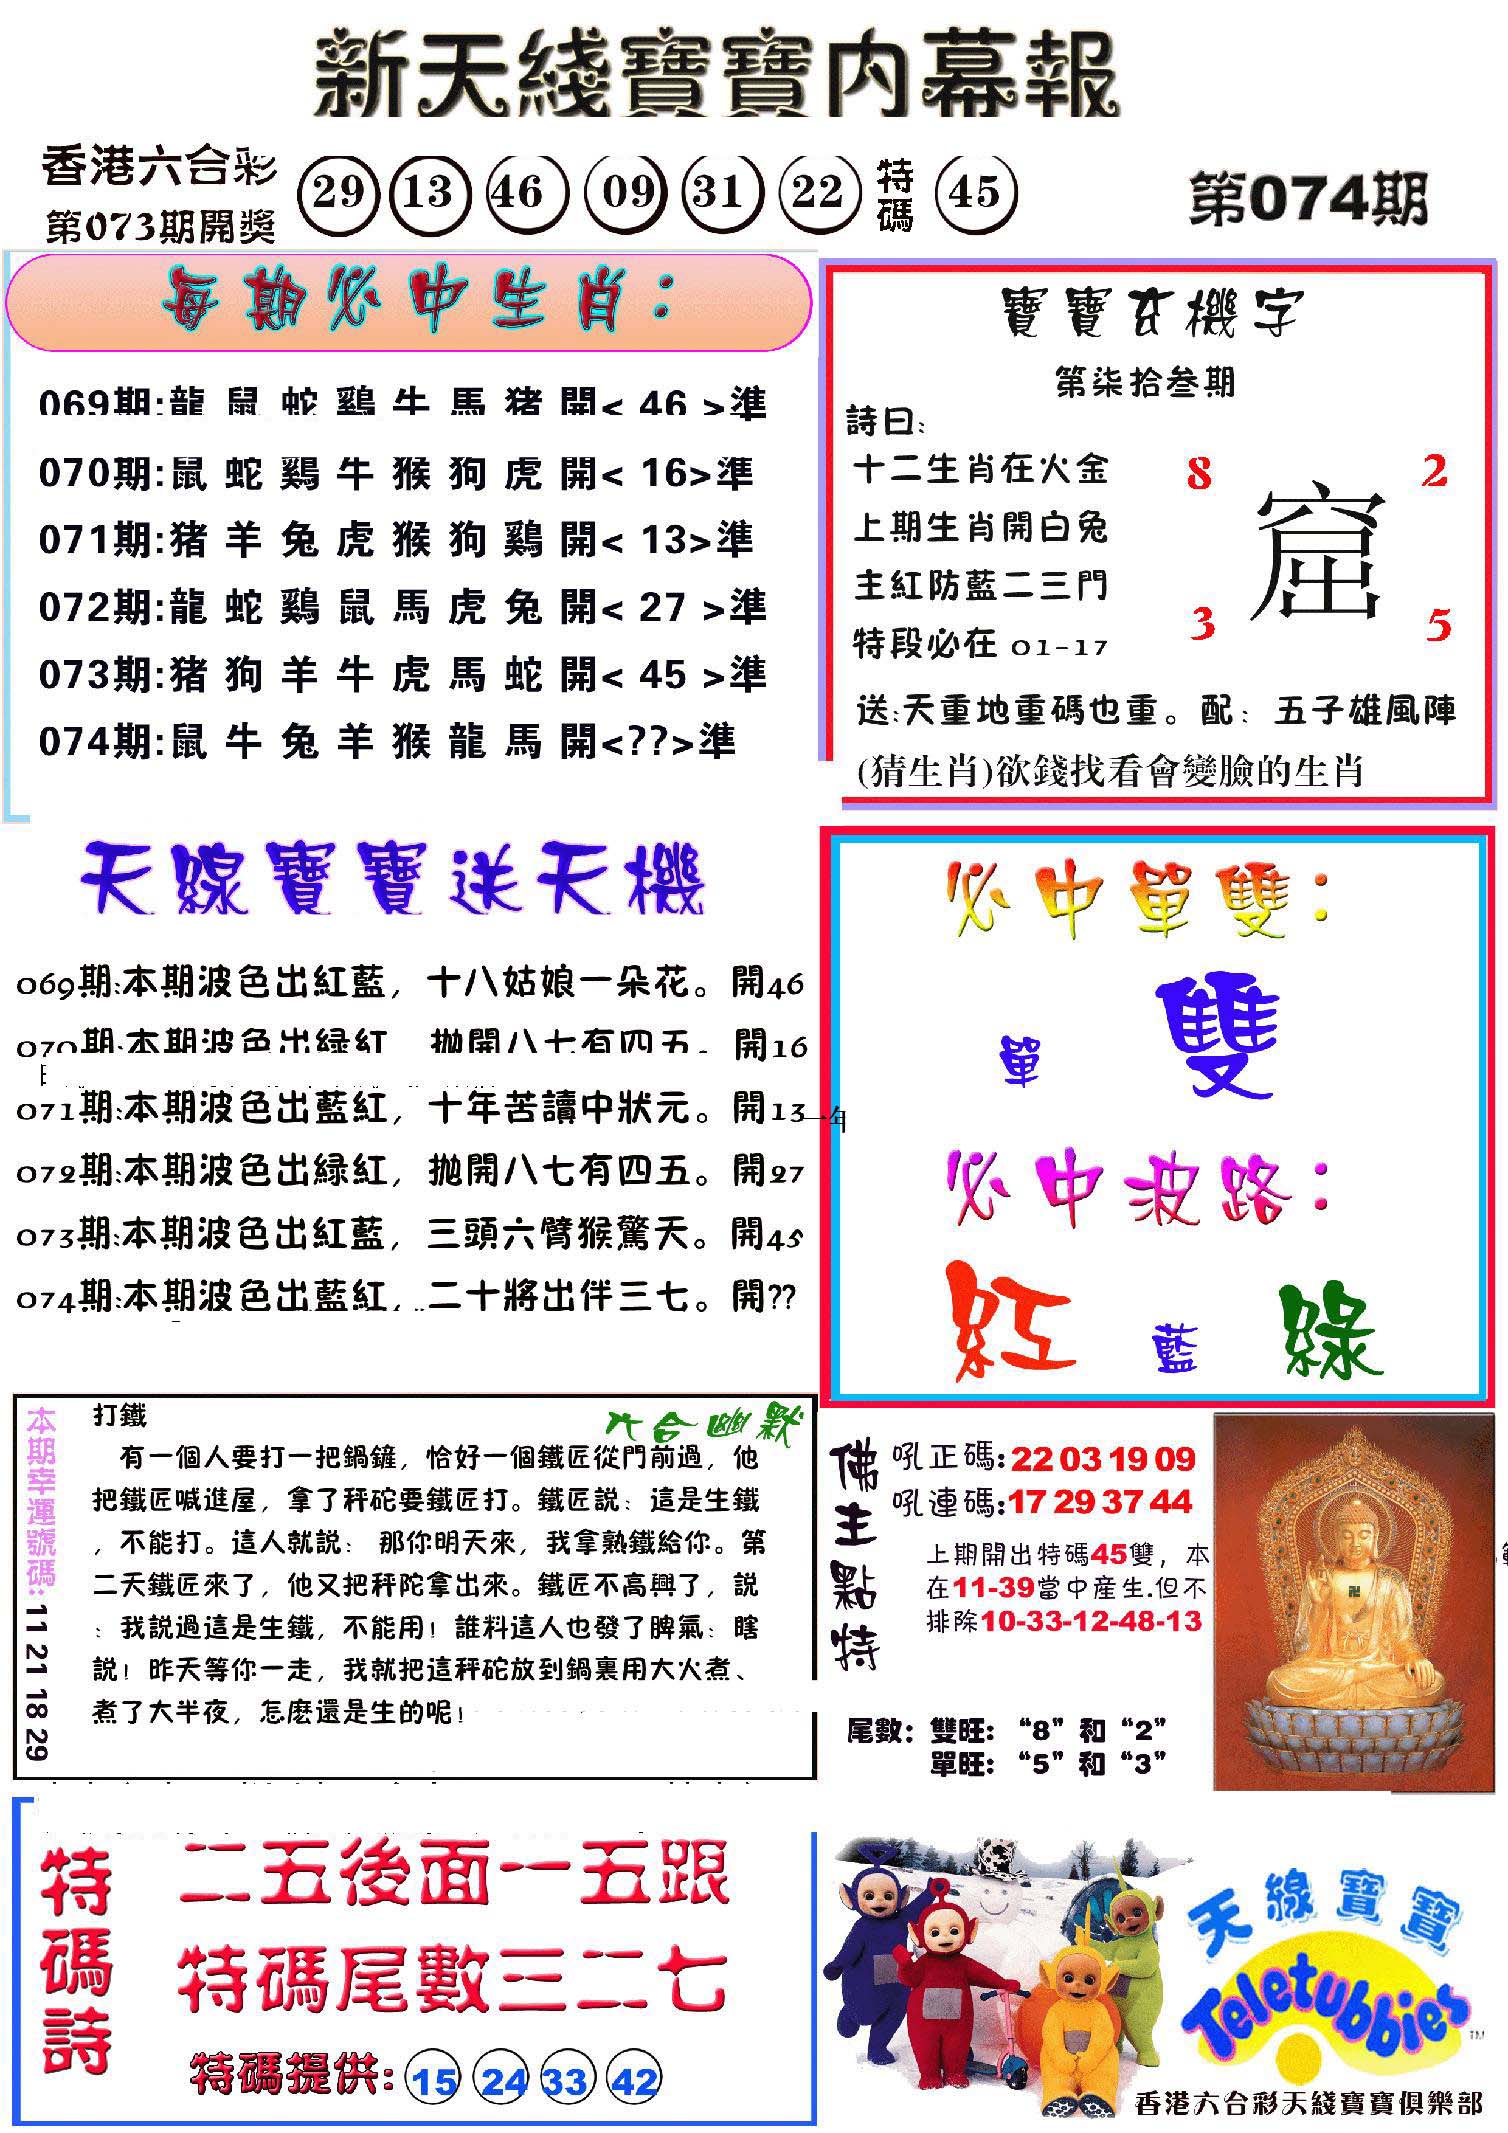 新天綫寶寶内幕報
香港六合彩
第073期開獎
29 13 46 09 31 22 特碼 45
第074期
每期必中生肖：
069期:龍 鼠 蛇 鷄 牛 馬 猪 開< 46 >準
070期:鼠 蛇 鷄 牛 猴 狗 虎 開< 16>準
071期:猪 羊 兔 虎 猴 狗 鷄 開< 13>準
072期:龍 蛇 鷄 鼠 馬 虎 兔 開< 27 >準
073期:猪 狗 羊 牛 虎 馬 蛇 開< 45 >準
074期:鼠 牛 兔 羊 猴 龍 馬 開<??>準
寶寶玄機字
第柒拾叁期
詩曰:
十二生肖在火金
上期生肖開白兔
主紅防藍二三門
特段必在 01-17
8 2
窟
3 5
送:天重地重碼也重。配：五子雄風陣
(猜生肖)欲錢找看會變臉的生肖
天線寶寶送天機
069期:本期波色出紅藍，十八姑娘一朵花。開46
070期:本期波色出緑紅，抛開八七有四五。開16
071期:本期波色出藍紅，十年苦讀中狀元。開13
072期:本期波色出緑紅，抛開八七有四五。開27
073期:本期波色出紅藍，三頭六臂猴驚天。開45
074期:本期波色出藍紅，二十將出伴三七。開??
必中單雙：
單 雙
必中波路：
紅 藍 綠
本期幸運號碼:11 21 18 29
六合幽默
打鐵
有一個人要打一把鍋鏟，恰好一個鐵匠從門前過，他
把鐵匠喊進屋，拿了秤砣要鐵匠打。鐵匠説：這是生鐵
，不能打。這人就説： 那你明天來，我拿熟鐵給你。第
二天鐵匠來了，他又把秤陀拿出來。鐵匠不高興了，説
：我説過這是生鐵，不能用！誰料這人也發了脾氣：瞎
説！昨天等你一走，我就把這秤砣放到鍋裏用大火煮、
煮了大半夜，怎麽還是生的呢！
佛主點特
吼正碼:22 03 19 09
吼連碼:17 29 37 44
上期開出特碼45雙，本
在11-39當中産生.但不
排除10-33-12-48-13
尾數：雙旺：“8”和“2”
單旺：“5”和“3”
特碼詩
二五後面一五跟
特碼尾數三二七
特碼提供: 15 24 33 42
天線寶寶
Teletubbies™
香港六合彩天綫寶寶俱樂部